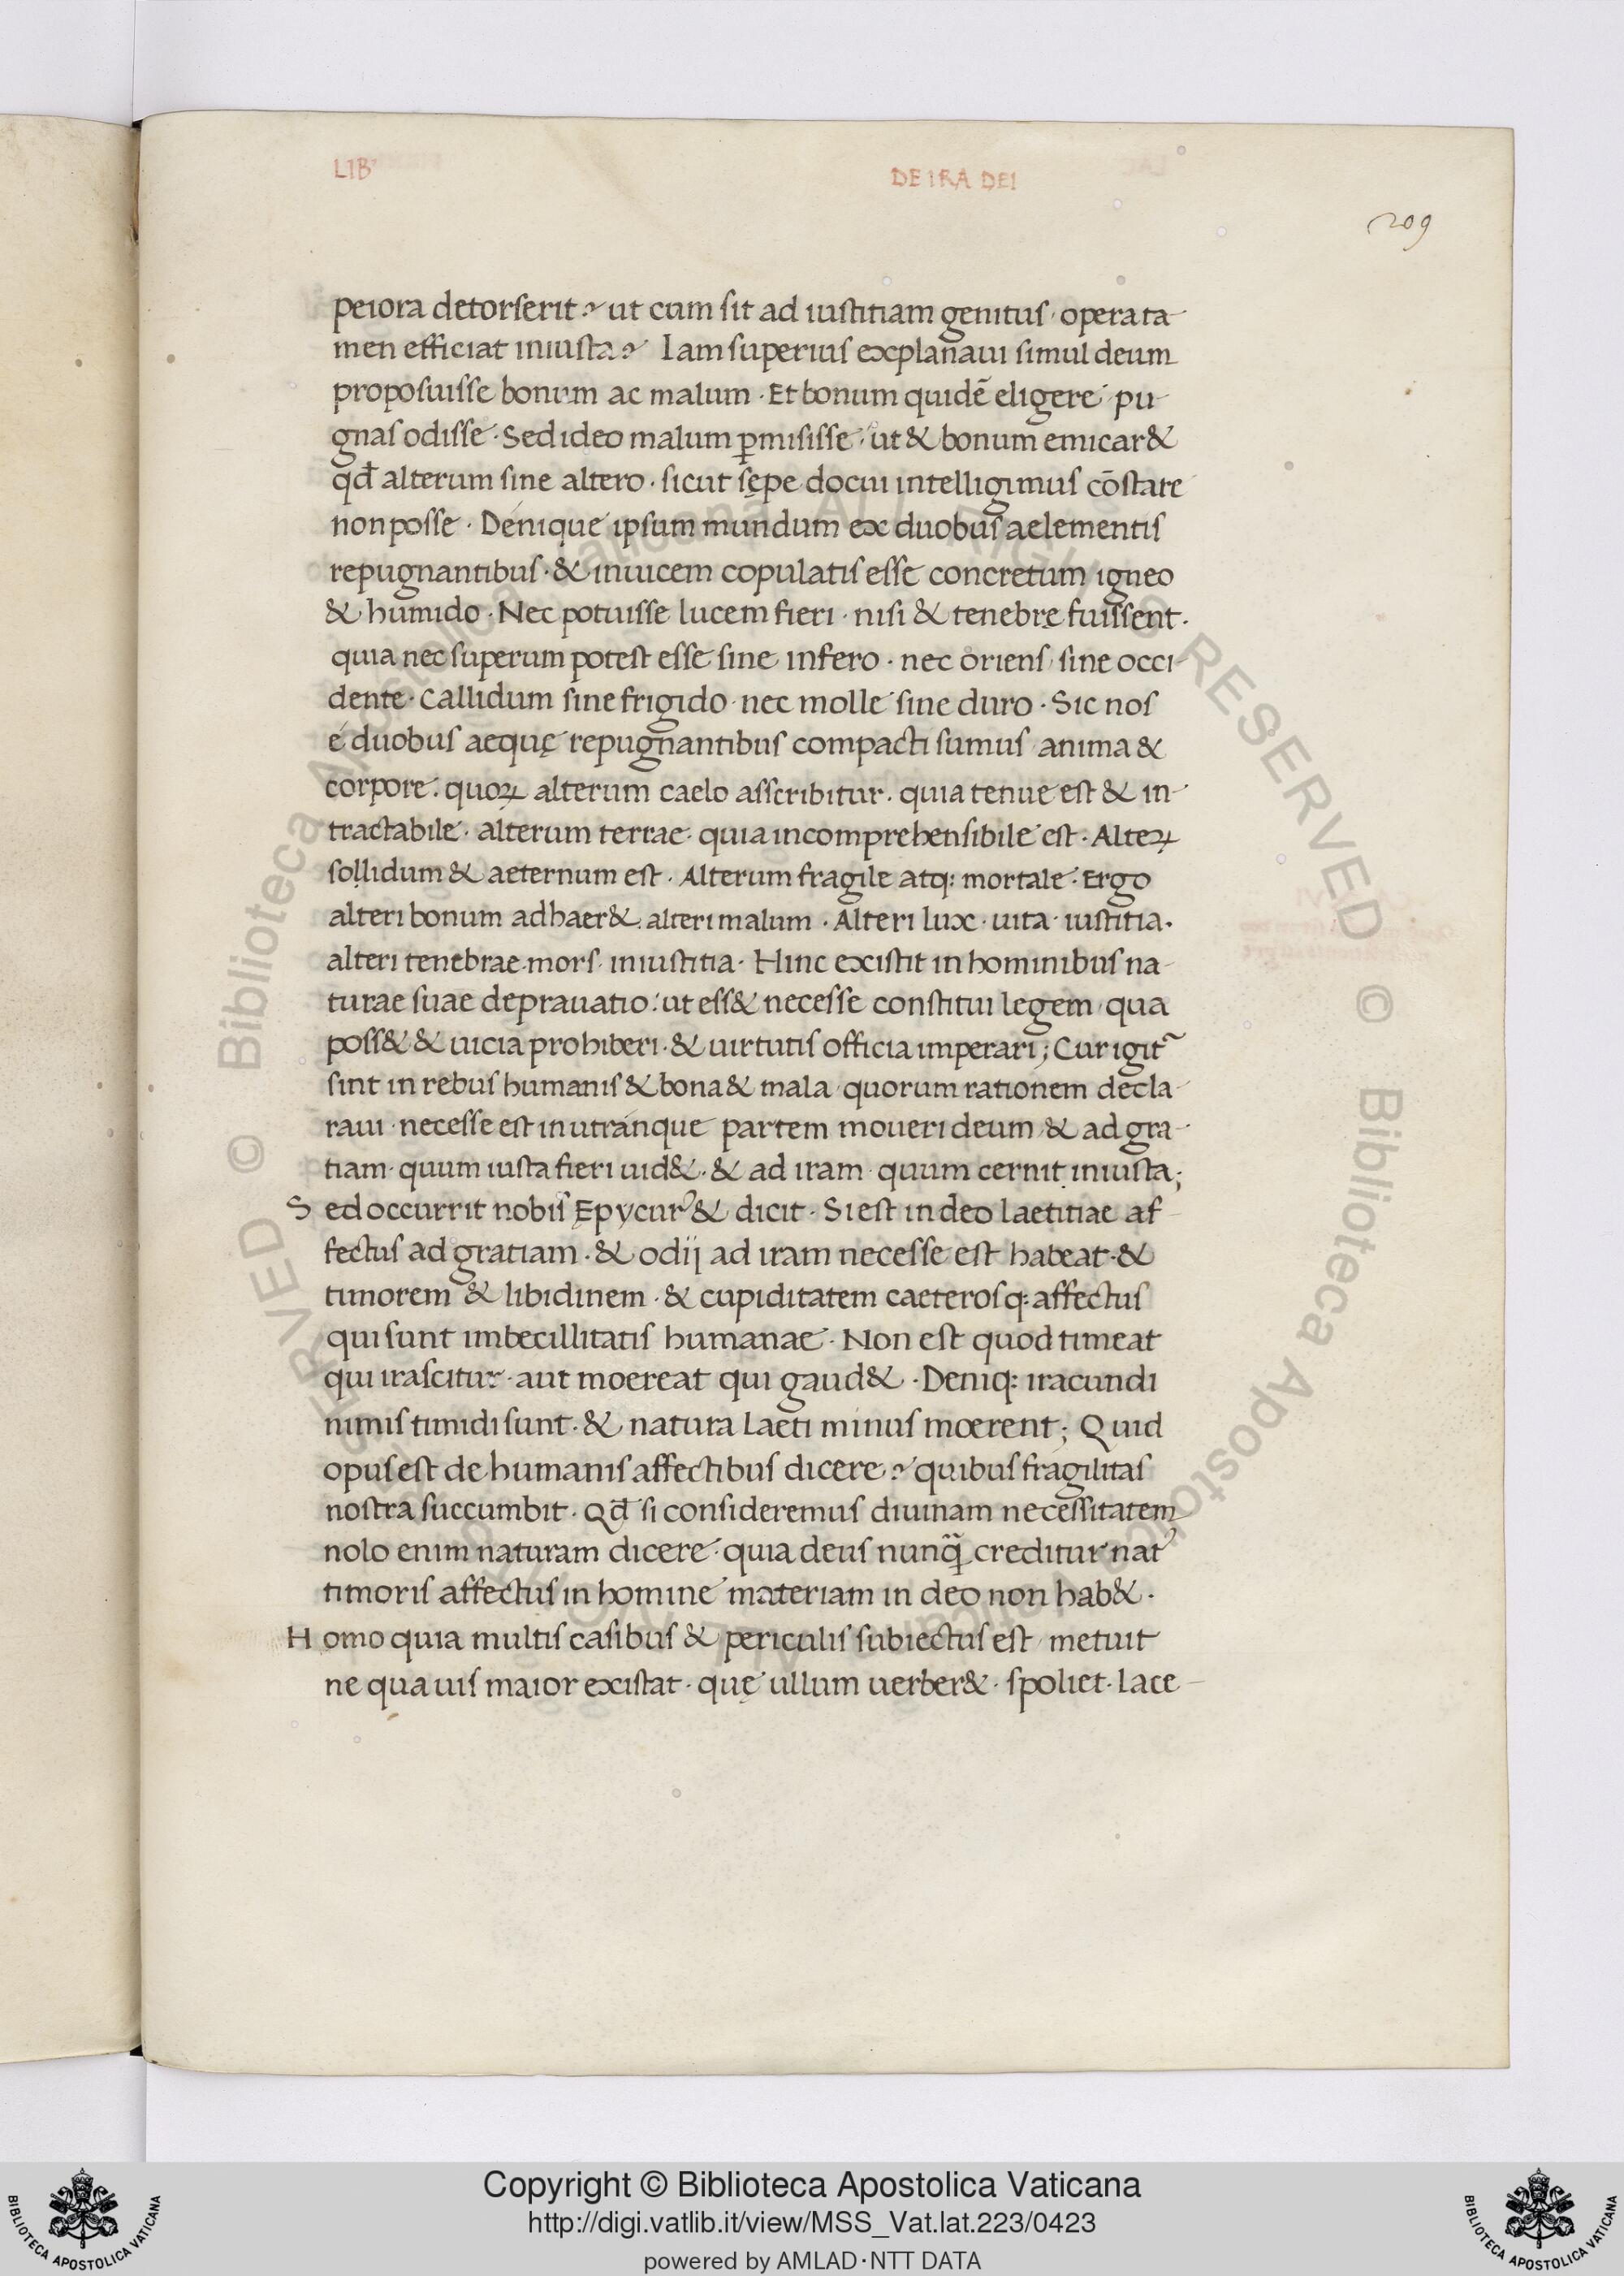 LIB'
DE IRA DEI
209
peiora detorserit? ut cum sit ad iustitiam genitus · opera ta-
men efficiat iniusta? Iam superius explanaui simul deum
proposuisse bonum ac malum · Et bonum quidē eligere pu-
gnas odisse · Sed ideo malum ꝑmisisse · ut & bonum emicar&
qđ alterum sine altero · sicut sępe docui intelligimus cōstare
non posse · Denique ipsum mundum ex duobus aelementis
repugnantibus · & inuicem copulatis esse concretum igneo
& humido · Nec potuisse lucem fieri · nisi & tenebrę fuissent ·
quia nec superum potest esse sine infero · nec oriens sine occi-
dente · Callidum sine frigido · nec molle sine duro · Sic nos
é duobus aequę repugnantibus compacti sumus anima &
corpore · quoꝝ alterum caelo asscribitur · quia tenue est & in-
tractabile · alterum terrae · quia incomprehensibile est · Alteꝝ
sollidum & aeternum est · Alterum fragile atq: mortale · Ergo
alteri bonum adhaer& · alteri malum · Alteri lux · uita · iustitia ·
alteri tenebrae · mors · iniustitia · Hinc existit in hominibus na-
turae suae deprauatio: ut ess& necesse constitui legem · qua
poss& & uicia prohiberi · & uirtutis officia imperari; Cur igit᷑
sint in rebus humanis & bona & mala · quorum rationem decla-
raui · necesse est in utránque partem moueri deum & ad gra-
tiam · quum iusta fieri uid& · & ad iram · quum cernit iniusta;
Sed occurrit nobis Epycurꝰ & dicit · Si est in deo laetitiae af-
fectus ad gratiam · & odij ad iram necesse est habeat · &
timorem & libidinem · & cupiditatem caeterosq: affectus
qui sunt imbecillitatis humanae · Non est quod timeat
qui irascitur · aut moereat qui gaud& · Deniq: iracundi
nimis timidi sunt · & natura laeti minus moerent; Quid
opus est de humanis affectibus dicere? quibus fragilitas
nostra succumbit · Qđ si consideremus diuinam necessitatem
nolo enim naturam dicere · quia deus nunꝗ̃ creditur natꝰ
timoris affectus in homine materiam in deo non hab& ·
Homo quia multis casibus & periculis subiectus est metuit
ne qua uis maior existat · quę ullum uerber& · spoliet · lace-
Copyright © Biblioteca Apostolica Vaticana
http://digi.vatlib.it/view/MSS_Vat.lat.223/0423
powered by AMLAD·NTT DATA